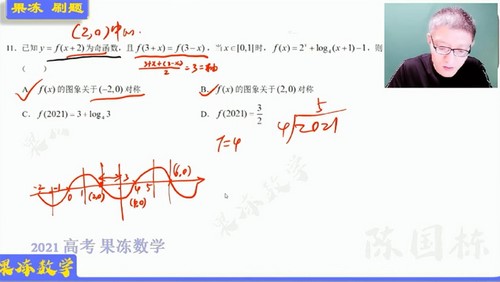 果冻 刷题
(2,0)中心
11. 已知y=f(x+2)为奇函数，且f(3+x)=f(3-x)，当x∈[0,1]时，f(x)=2ˣ+log₄(x+1)-1，则
(    )
3+x+(3-x)/2=3=轴
A. f(x)的图象关于(-2,0)对称
B. f(x)的图象关于(2,0)对称
C. f(2021)=3+log₄3
D. f(2021)=3/2
5
4 2021
T=4
(6,0)
-2 -1 0 1 (2,0) 3 4 5
(4,0)
2021 高考 果冻数学
果冻数学
陈国栋